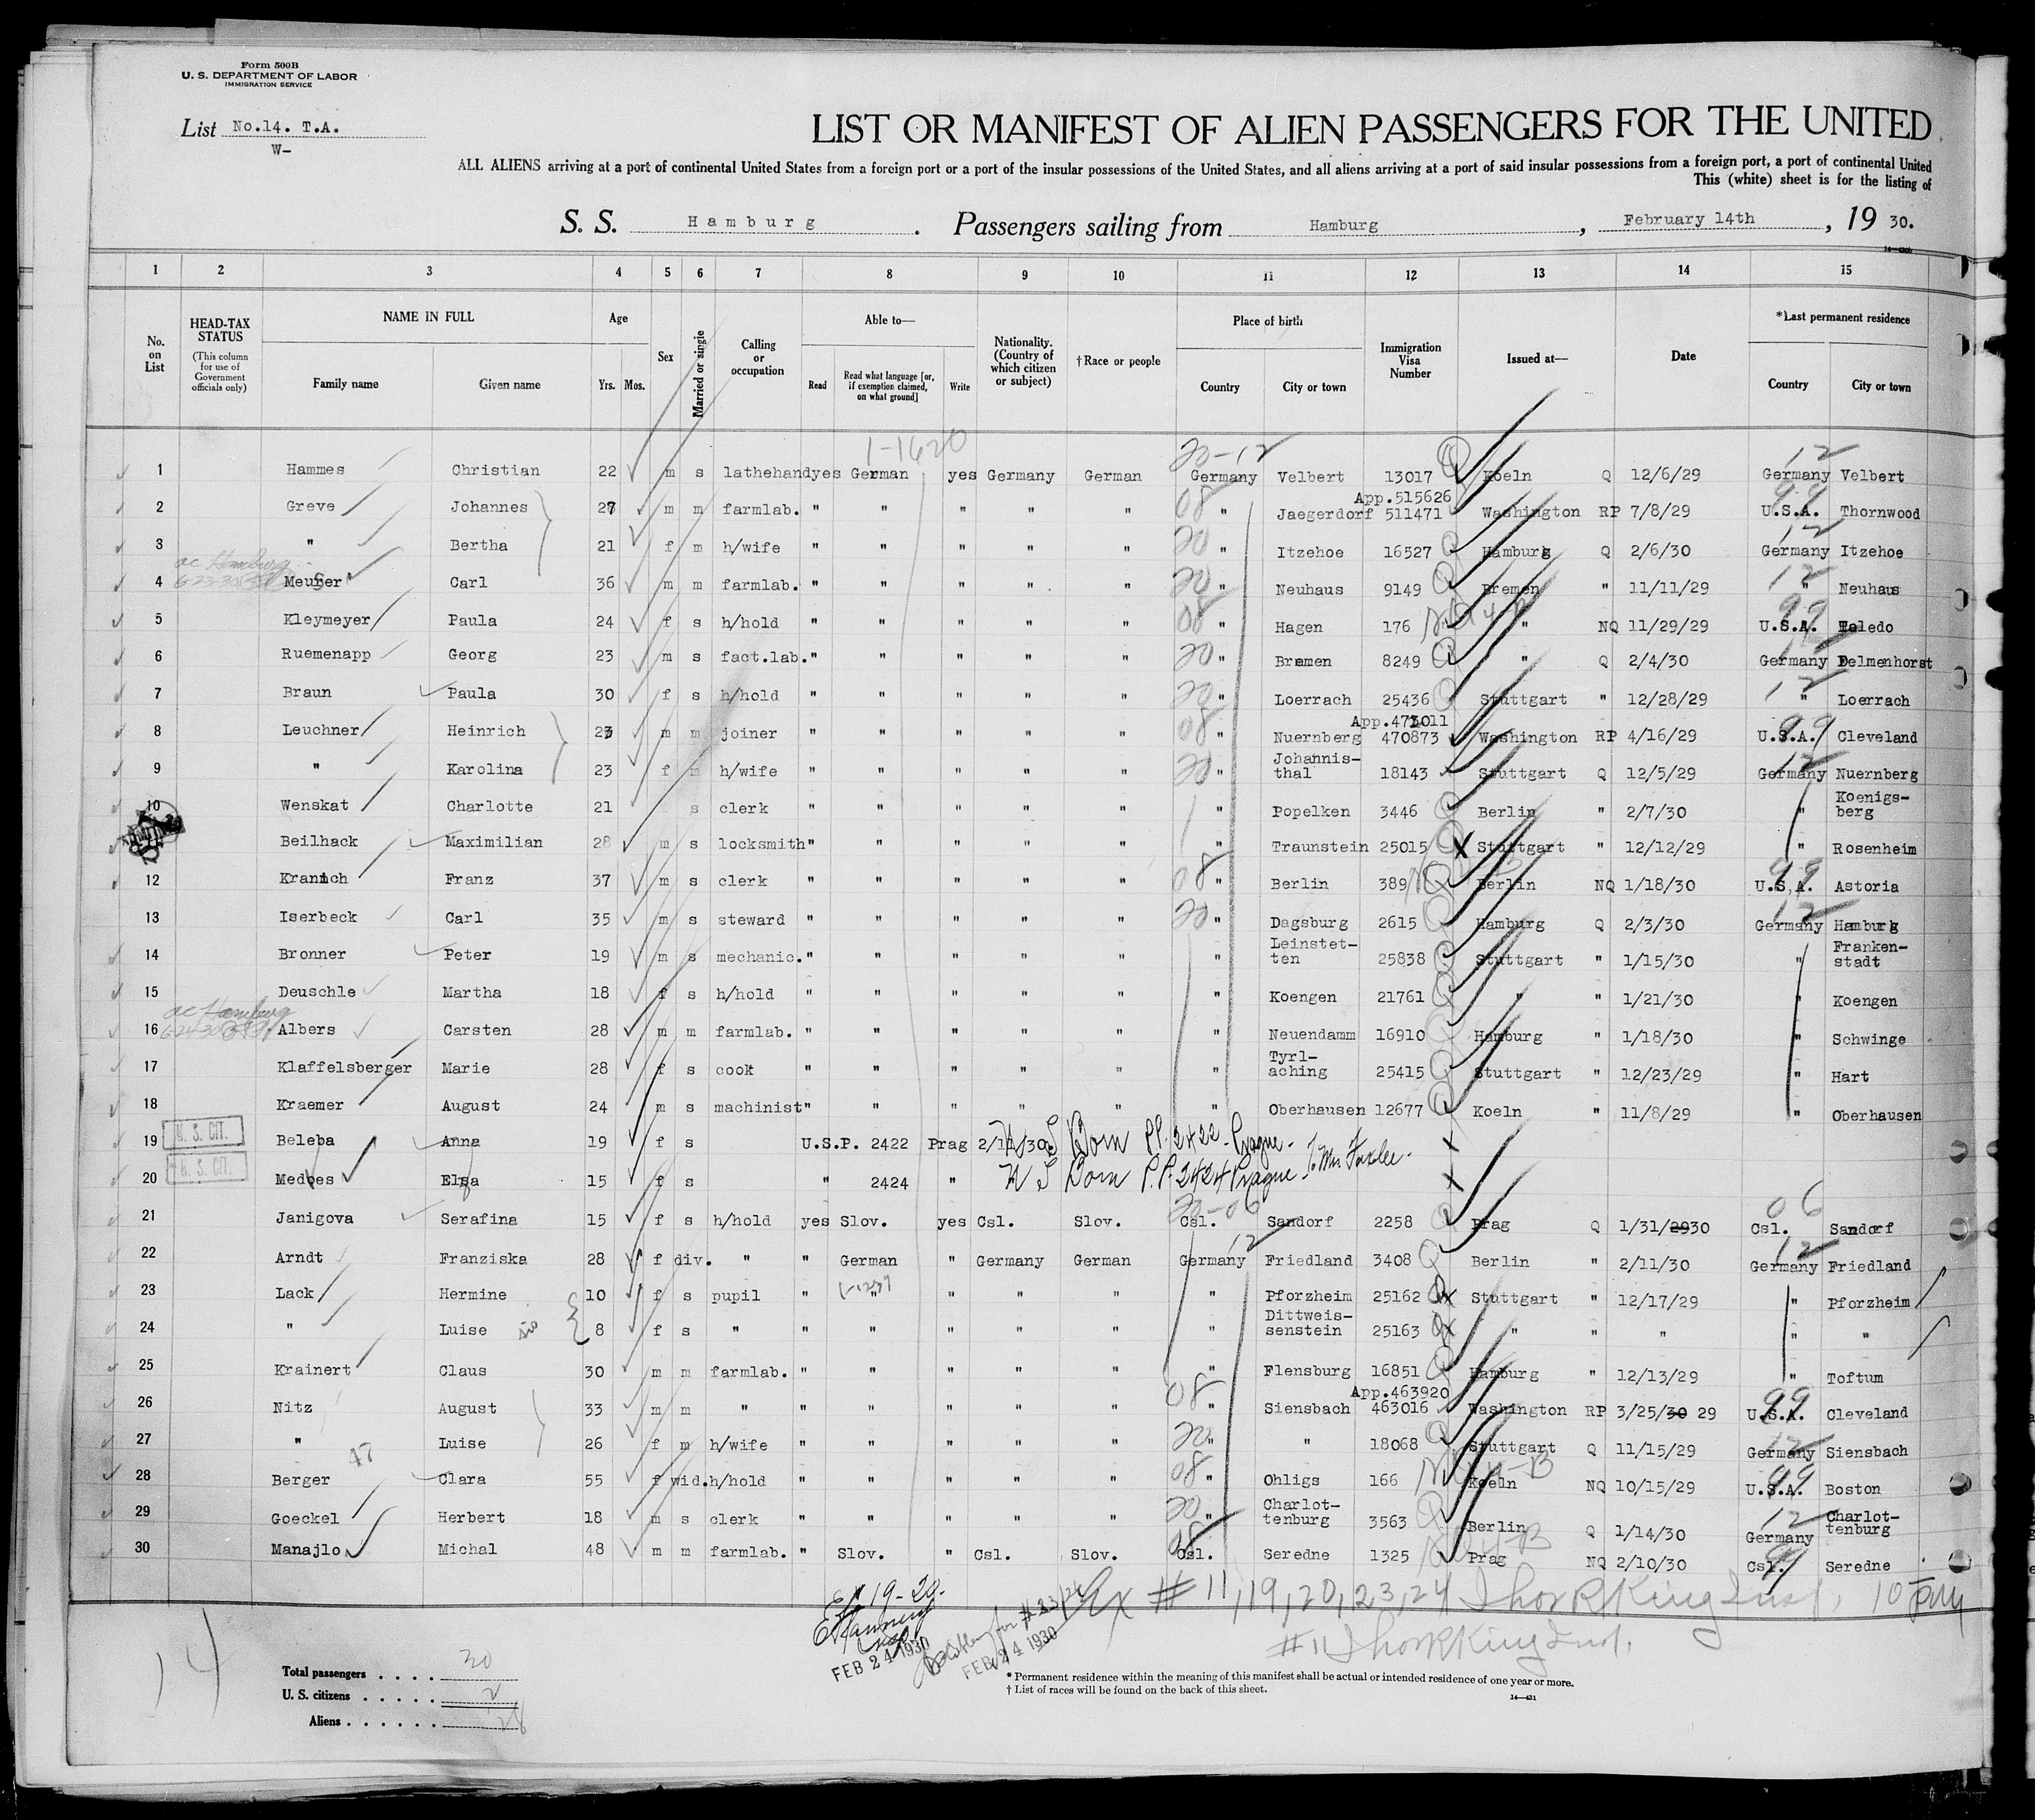 Form 500B
U. S. DEPARTMENT OF LABOR
IMMIGRATION SERVICE
List No.14. T.A.
W-
LIST OR MANIFEST OF ALIEN PASSENGERS FOR THE UNITED
ALL ALIENS arriving at a port of continental United States from a foreign port or a port of the insular possessions of the United States, and all aliens arriving at a port of said insular possessions from a foreign port, a port of continental United
This (white) sheet is for the listing of
S. S. Hamburg. Passengers sailing from Hamburg, February 14th, 19 30.
1 2 3 4 5 6 7 8 9 10 11 12 13 14 15
No. on List
HEAD-TAX STATUS (This column for use of Government officials only)
NAME IN FULL Family name Given name
Age Yrs. Mos.
Sex
Married or single
Calling or occupation
Able to— Read Read what language [or, if exemption claimed, on what ground] Write
Nationality. (Country of which citizen or subject)
†Race or people
Place of birth Country City or town
Immigration Visa Number
Issued at—
Date
*Last permanent residence Country City or town
1-1620 20-12 12
1 Hammes Christian 22 m s lathehand yes German yes Germany German Germany Velbert 13017 Q Koeln Q 12/6/29 Germany Velbert
2 Greve Johannes 27 m m farmlab. " " " " " 08 " Jaegerdorf App.515626 511471 Washington RP 7/8/29 99 U.S.A. Thornwood
3 " Bertha 21 f m h/wife " " " " " 20 " Itzehoe 16527 Q Hamburg Q 2/6/30 12 Germany Itzehoe
ac Hamburg
6-23-30
4 Meuser Carl 36 m m farmlab. " " " " " 20 " Neuhaus 9149 Q Bremen " 11/11/29 12 " Neuhaus
5 Kleymeyer Paula 24 f s h/hold " " " " " 08 " Hagen 176 " NQ 11/29/29 99 U.S.A. Toledo
6 Ruemenapp Georg 23 m s fact.lab. " " " " " 20 " Bremen 8249 Q " Q 2/4/30 Germany Delmenhorst
7 Braun Paula 30 f s h/hold " " " " " 20 " Loerrach 25436 Q Stuttgart " 12/28/29 12 " Loerrach
8 Leuchner Heinrich 23 m m joiner " " " " " 08 " Nuernberg App.473011 470873 Washington RP 4/16/29 99 U.S.A. Cleveland
9 " Karolina 23 f m h/wife " " " " " 20 " Johannis-thal 18143 Stuttgart Q 12/5/29 12 Germany Nuernberg
10 Wenskat Charlotte 21 s clerk " " " " " " Popelken 3446 Q Berlin " 2/7/30 " Koenigs-berg
Beilhack Maximilian 28 m s locksmith " " " " " " Traunstein 25015 Q X Stuttgart " 12/12/29 " Rosenheim
12 Kranich Franz 37 m s clerk " " " " " 08 " Berlin 389 NQ Berlin NQ 1/18/30 99 U.S.A. Astoria
13 Iserbeck Carl 35 m s steward " " " " " 20 " Dagsburg 2615 Q Hamburg Q 2/3/30 12 Germany Hamburg
14 Bronner Peter 19 m s mechanic. " " " " " " Leinstet-ten 25838 Q Stuttgart " 1/15/30 " Franken-stadt
15 Deuschle Martha 18 f s h/hold " " " " " " Koengen 21761 Q " " 1/21/30 " Koengen
ac Hamburg
6-24-30
16 Albers Carsten 28 m m farmlab. " " " " " " Neuendamm 16910 Q Hamburg " 1/18/30 " Schwinge
17 Klaffelsberger Marie 28 f s cook " " " " " " Tyrl-aching 25415 Q Stuttgart " 12/23/29 " Hart
18 Kraemer August 24 m s machinist " " " " " " Oberhausen 12677 Q Koeln " 11/8/29 " Oberhausen
19 U. S. CIT. Beleba Anna 19 f s U.S.P. 2422 Prag U S Born P.P. 2422 - Prague. x
20 U. S. CIT. Medbes Elsa 15 f s " 2424 " U S Born P.P. 2424 Prague. x
20-06 06
21 Janigova Serafina 15 f s h/hold yes Slov. yes Csl. Slov. Csl. Sandorf 2258 Q Prag Q 1/31/2930 Csl. Sandorf
22 Arndt Franziska 28 f div. " " German " Germany German 12 Germany Friedland 3408 Q Berlin " 2/11/30 12 Germany Friedland
23 Lack Hermine 10 f s pupil " " " " " " Pforzheim 25162 Qx Stuttgart " 12/17/29 " Pforzheim
24 " Luise sis 8 f s " " " " " " " Dittweis-senstein 25163 Qx " " " " "
25 Krainert Claus 30 m m farmlab. " " " " " " Flensburg 16851 Q Hamburg " 12/13/29 " Toftum
26 Nitz August 33 m m " " " " " " 08 " Siensbach App.463920 463016 Washington RP 3/25/30 29 99 U.S.A. Cleveland
27 " Luise 26 f m h/wife " " " " " 20 " " 18068 Q Stuttgart Q 11/15/29 12 Germany Siensbach
47
28 Berger Clara 55 f wid. h/hold " " " " " 08 " Ohligs 166 NQ 4-B Koeln NQ 10/15/29 99 U.S.A. Boston
29 Goeckel Herbert 18 m s clerk " " " " " 20 " Charlot-tenburg 3563 Q Berlin Q 1/14/30 12 Germany Charlot-tenburg
30 Manajlo Michal 48 m m farmlab. " Slov. " Csl. Slov. 08 Csl. Seredne 1325 NQ 4-B Prag NQ 2/10/30 Csl. Seredne
Ex # 11, 19, 20, 23, 24
Ex 19-20.
FEB 24 1930
for #23/24
FEB 24 1930
14
Total passengers . . . . 30
U. S. citizens . . . . . 2
Aliens . . . . . . 28
* Permanent residence within the meaning of this manifest shall be actual or intended residence of one year or more.
† List of races will be found on the back of this sheet.
14—431